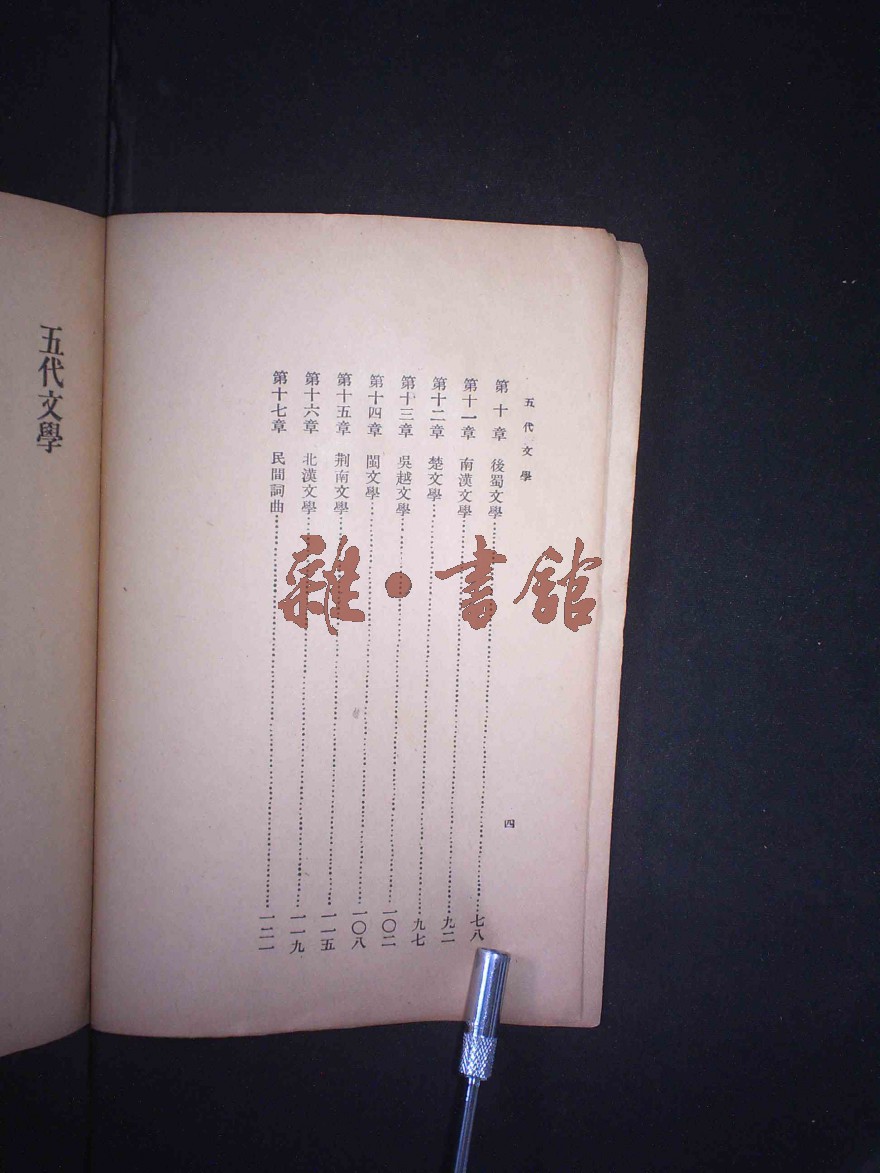 五代文學
第十章　後蜀文學……七八
第十一章　南漢文學……九二
第十二章　楚文學……九七
第十三章　吳越文學……一〇二
第十四章　閩文學……一〇八
第十五章　荆南文學……一一五
第十六章　北漢文學……一一九
第十七章　民間詞曲……一二一
四
五代文學
雜·書館